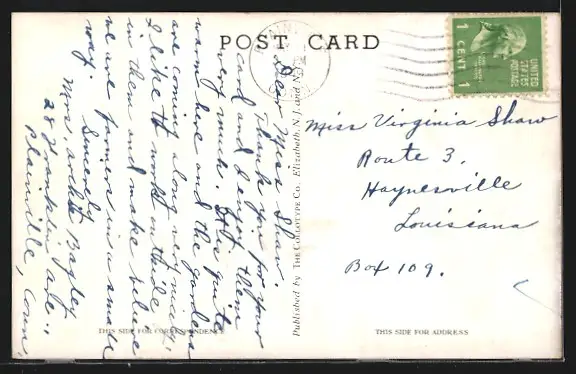 POST CARD
UNITED
STATES
POSTAGE
1 CENT 1
Dear Miss Shaw,
Thank you for your
card and enjoy them
very much. It is quite
warm here and the gardens
are coming along very nicely,
I like to work outside
in them and make believe
we are farmers in a small
way.
Sincerely
Mrs. Bagley
28 Franklin Ave.,
Plainville, Conn.
Published by THE COLLOTYPE Co., Elizabeth, N. J. and N. Y.
Miss Virginia Shaw
Route 3,
Haynesville
Louisiana
Box 109.
THIS SIDE FOR CORRESPONDENCE
THIS SIDE FOR ADDRESS